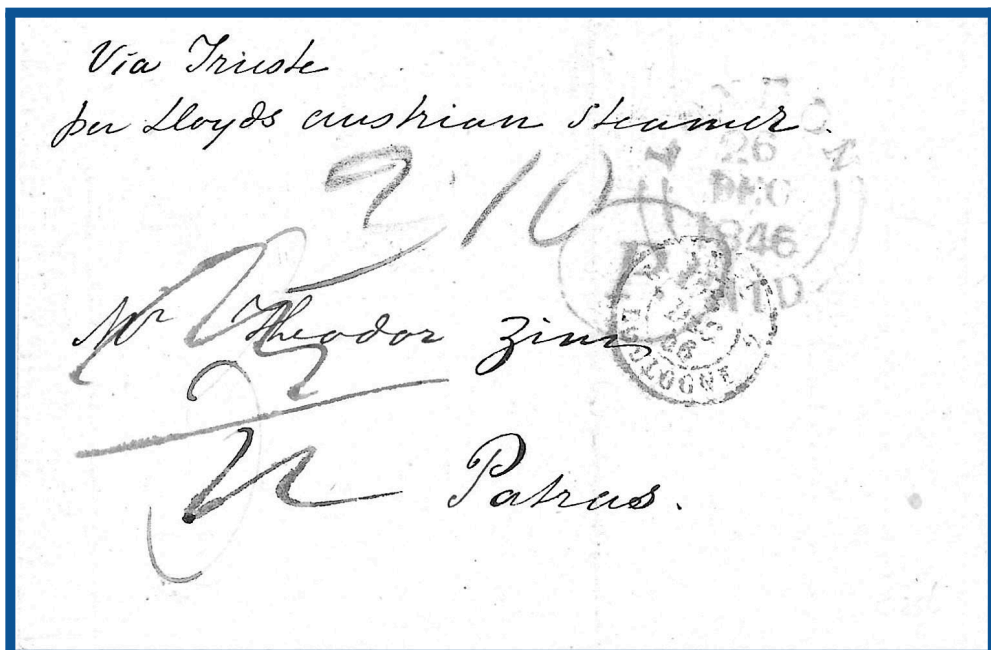 Via Trieste
per Lloyds austrian Steamer.
2/10
26
DEC
1846
PAID
Mr Theodor Zinn
Patras.